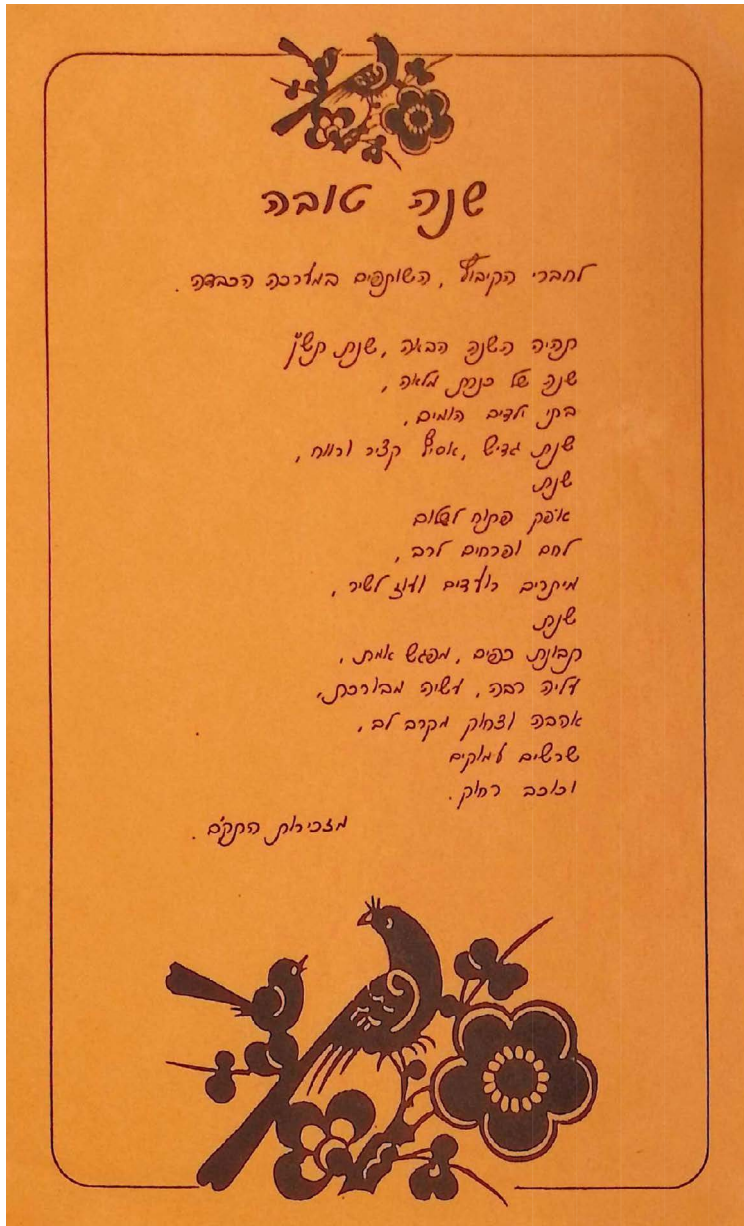 שנה טובה
לחברי הקיבוץ, השותפים במערכה הכבדה.
תהיה השנה הבאה, שנת תש"ן
שנה של כנרת מלאה,
בתי ילדים הומים,
שנת גדיש, אסיף קציר ורווח,
שנת
אופק פתוח לשלום
לחם ופרחים לרב,
מיתרים רועדים ועוז לשיר,
שנת
תבונת כפים, מפגש אמת,
עליה רבה, עשיה מבורכת,
אהבה וצחוק מקרב לב,
שרשים עמוקים
וכוכב רחוק.
מזכירות התק"ם.